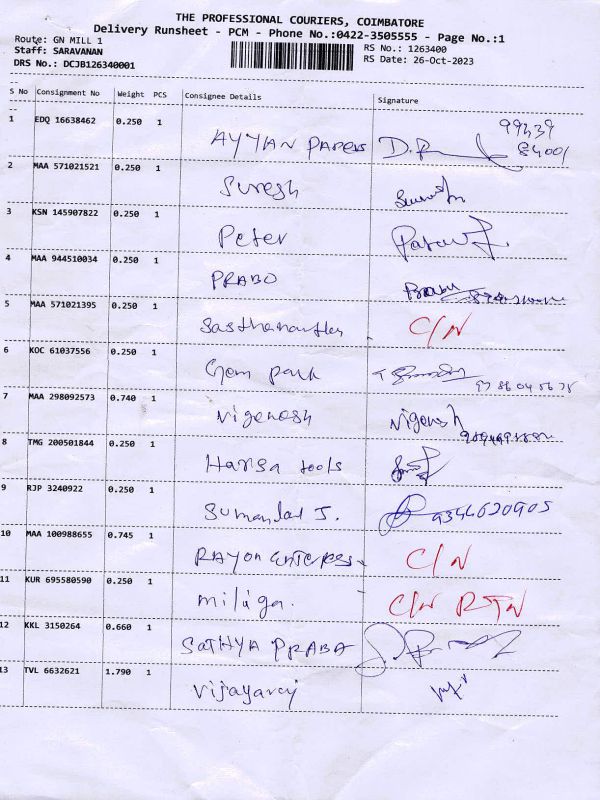 THE PROFESSIONAL COURIERS, COIMBATORE
Delivery Runsheet - PCM - Phone No.:0422-3505555 - Page No.:1
Route: GN MILL 1
Staff: SARAVANAN
DRS No.: DCJB126340001
RS No.: 1263400
RS Date: 26-Oct-2023
S No Consignment No Weight PCS Consignee Details Signature
1 EDQ 16638462 0.250 1 AYYAN PAPERS
2 MAA 571021521 0.250 1 Suresh
3 KSN 145907822 0.250 1 Peter
4 MAA 944510034 0.250 1 PRABO Prabu
5 MAA 571021395 0.250 1 C/N
6 KOC 61037556 0.250 1 Gem park
7 MAA 298092573 0.740 1 Vignesh Vignesh
8 TMG 200501844 0.250 1 Hansa tools
9 RJP 3240922 0.250 1 Sumandal J. 9344620905
10 MAA 100988655 0.745 1 RAYON C/N
11 KUR 695580590 0.250 1 miluga. C/N RTN
12 KKL 3150264 0.660 1 SATHYA PRABA
13 TVL 6632621 1.790 1 Vijayaraj